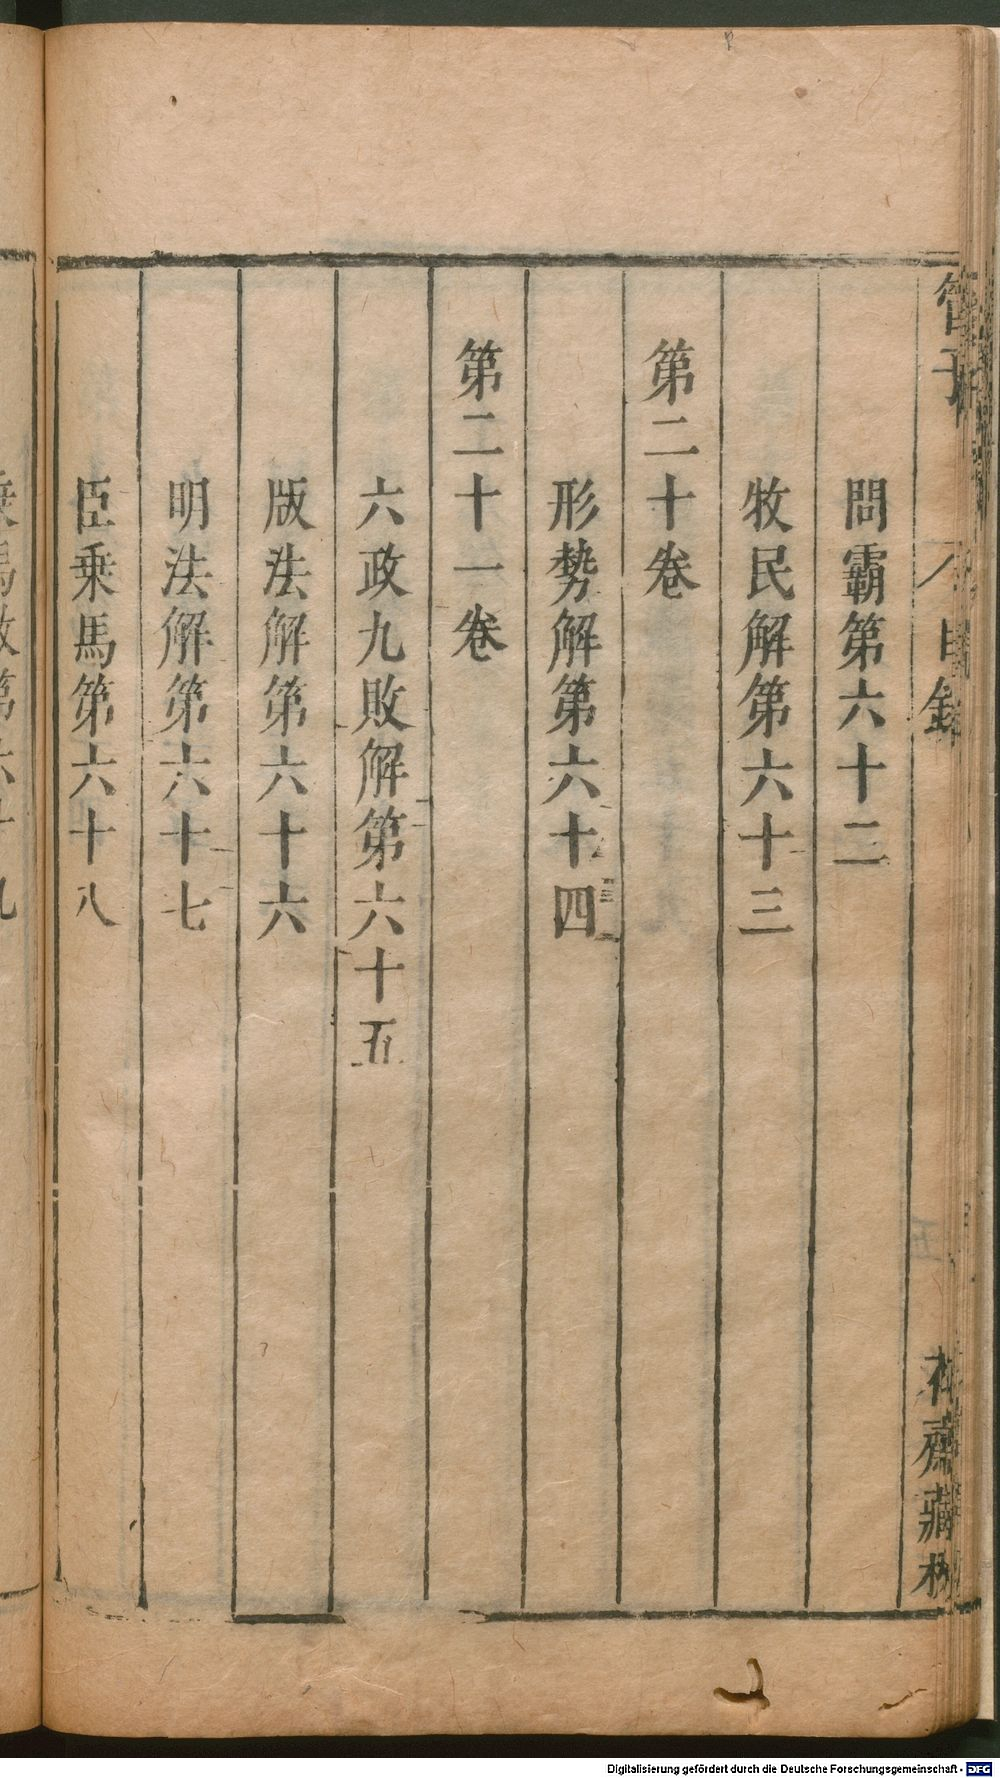 管子
目錄
藏
問霸第六十二
牧民解第六十三
第二十卷
形勢解第六十四
第二十一卷
六政九敗解第六十五
版法解第六十六
明法解第六十七
臣乗馬第六十八
Digitalisierung gefördert durch die Deutsche Forschungsgemeinschaft - DFG